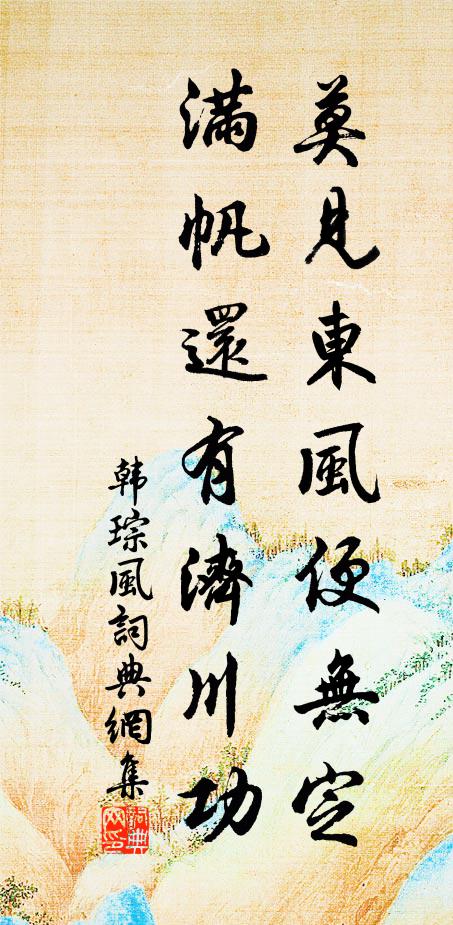 莫見東風便無定
滿帆還有濟川功
韩琮風詞典網集
詞典網印